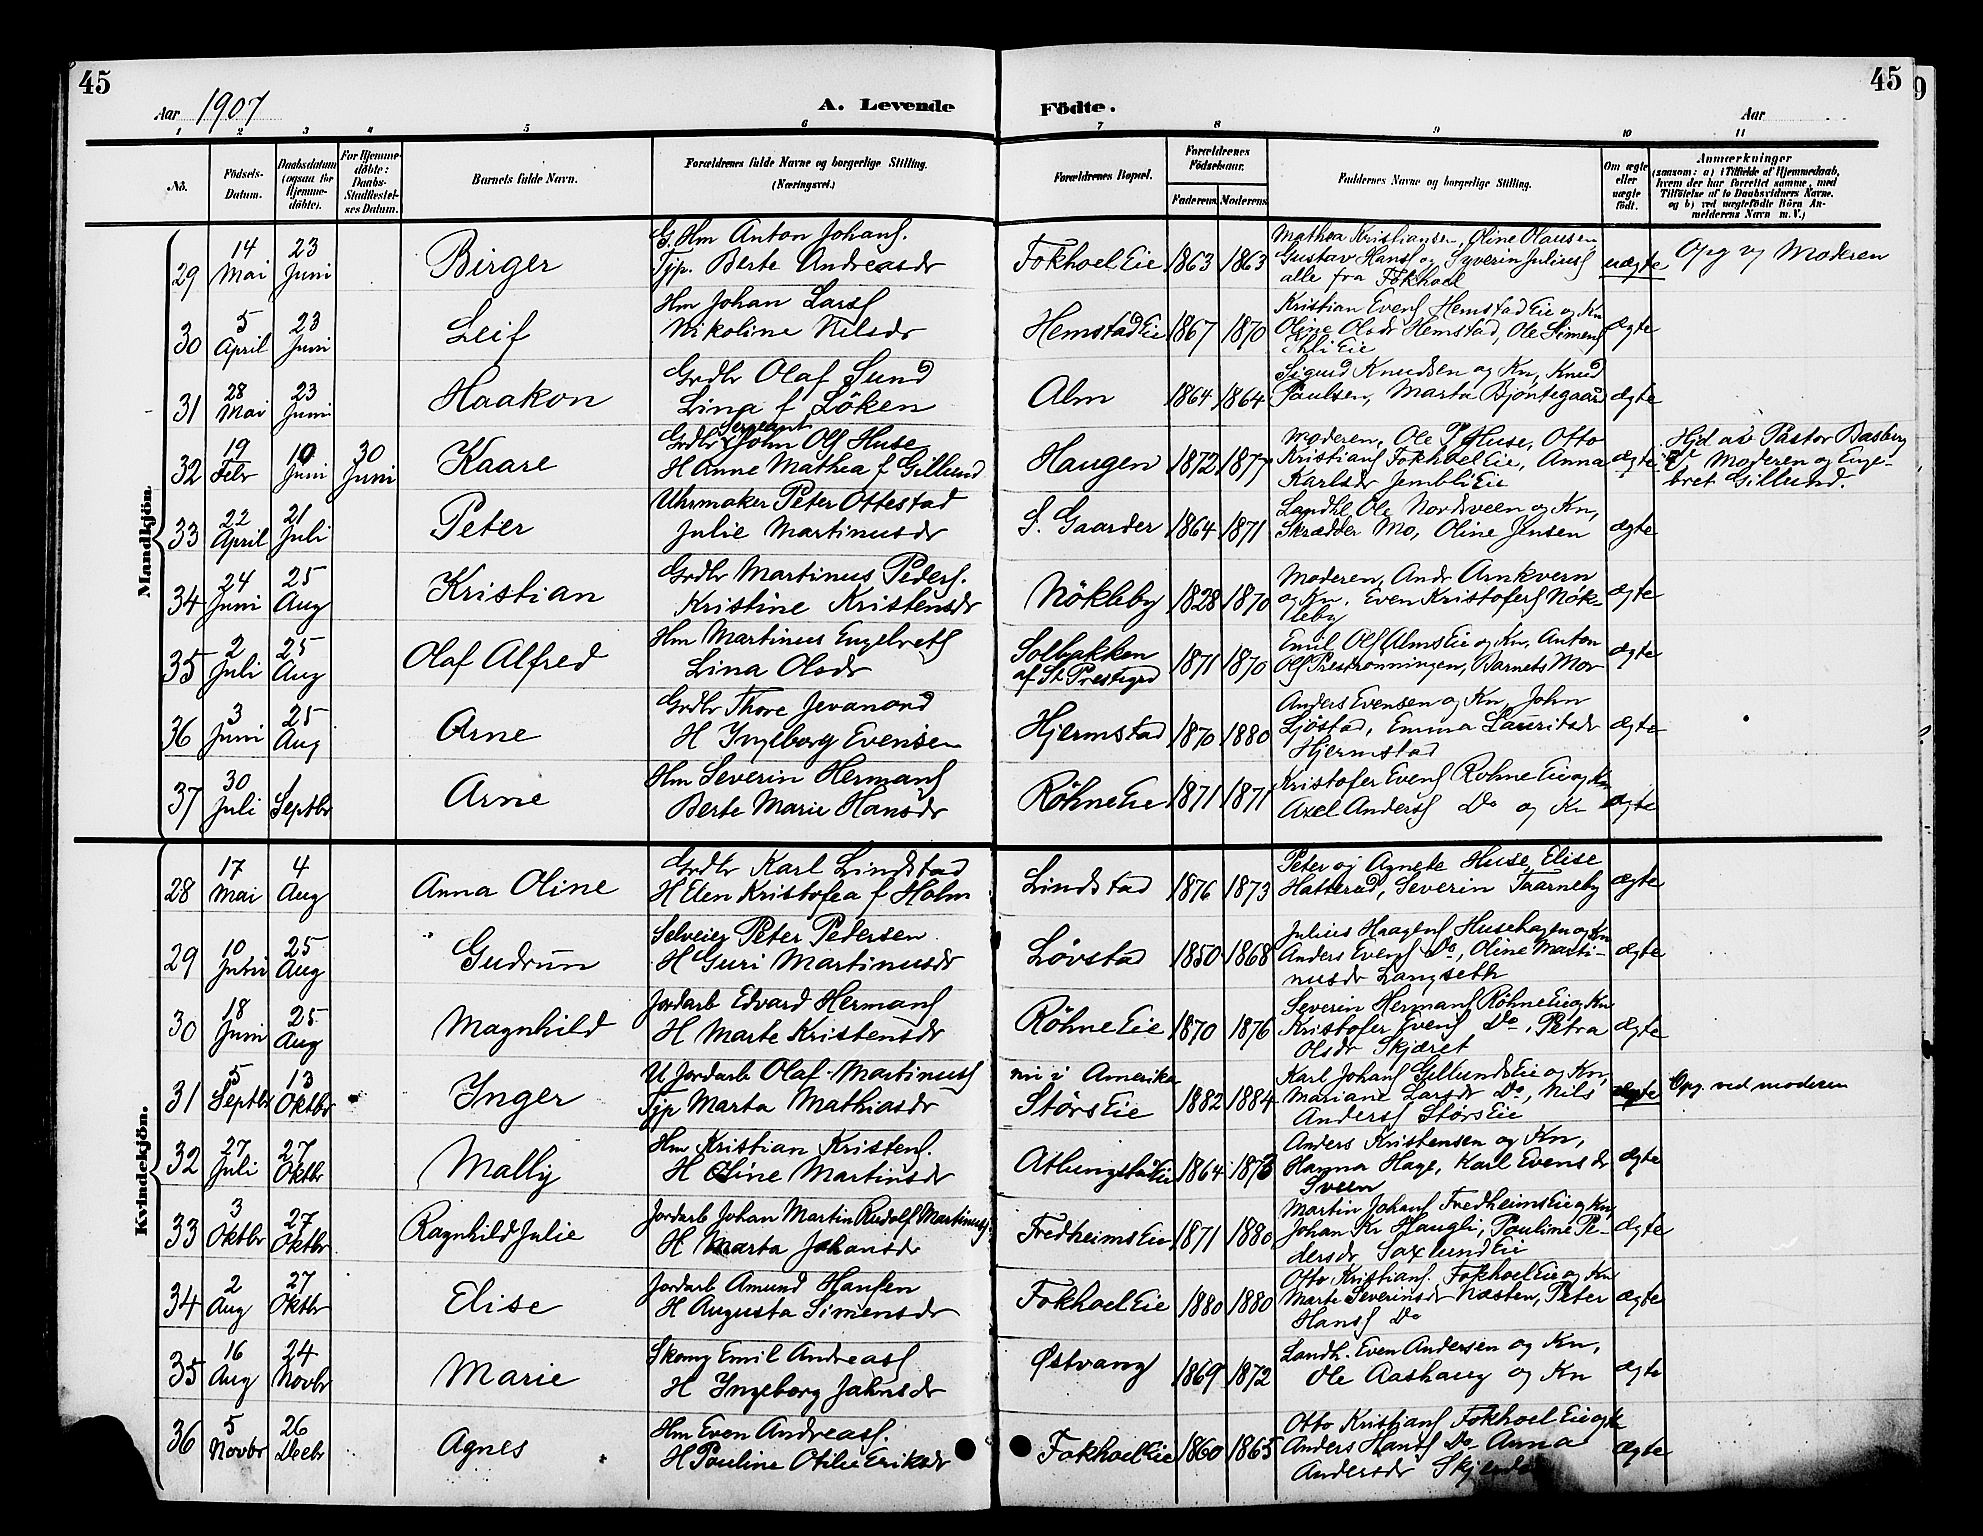 45
45
Aar 1907
A. Levende Födte.
Aar
1 2 3 4 5 6 7 8 9 10 11
No.
Födsels-Datum.
Daabsdatum (ogsaa for Hjemme-döbte).
For Hjemme-döbte: Daabs-Stadfæstel-ses Datum.
Barnets fulde Navn.
Forældrenes fulde Navne og borgerlige Stilling. (Næringsvei.)
Forældrenes Bopæl.
Forældrenes Födselsaar.
Faderens Moderens
Faddernes Navne og borgerlige Stilling.
Om ægte eller uægte födt.
Anmærkninger
(saasom: a) i Tilfælde af Hjemmedaab,
hvem der har forrettet samme, med
Tilföielse af to Daabsvidners Navne.
og b) ved uægtefödte Börn An-
melderens Navn m. V.)
Mandkjön.
29 14 Mai 23 Juni Birger
G. Hm Anton Johans.
Tjp. Berte Andreasdr
Fokhoel Eie 1863 1863
Mathea Kristiansen, Oline Olausen
Gustav Hans og Syverin Julius
alle fra Fokhoel
uægte
Opg v Moderen
30 5 April 23 Juni Leif
Hm Johan Lars
Nikoline Nilsdr
Hemstad Eie 1867 1870
Kristian Evens Hemstad Eie og Kn
Oline Olsdr Hemstad, Ole Simens
Eie
ægte
31 28 Mai 23 Juni Haakon
Grdbr Olaf Sund
Lina f Löken
Alm 1864 1864
Sigurd Knudsen og Kn, Knud
Paulsen, Marta Bjöntegaard
ægte
32 19 Febr 10 Juni 30 Juni Kaare
Sergeant
Grdbr John Ols Huse
H Anne Mathea f Gillund
Haugen 1872 1877
Moderen, Ole P Huse, Otto
Kristians Fokhoel Eie, Anna
Karlsdr Jembli Eie
ægte
Hjd av Pastor Basberg
Moderen og Enge-
bret Gillund.
33 22 April 21 Juli Peter
Uhrmaker Peter Ottestad
Julie Martinusdr
S. Gaarder 1864 1871
Landhl Ole Nordsveen og Kn,
Skrædder Mo, Oline Jensen
ægte
34 24 Juni 25 Aug Kristian
Grdbr Martinus Peders.
Kristine Kristensdr
Nökleby 1828 1870
Moderen, Andr Arnkvern
og Kn. Even Kristofers Nök-
leby
ægte
35 2 Juli 25 Aug Olaf Alfred
Hm Martinus Engebrets
Lina Olsdr
Solbakken
af St. Prestegrd
1871 1870
Emil Ols Alms Eie og Kn, Anton
Ols Preströnningen, Barnets Mor
ægte
36 3 Juni 25 Aug Arne
Grdbr Thore Jevanord
H Ingeborg Evensen
Hjermstad 1870 1880
Anders Evensen og Kn, John
Sjöstad, Emma Lauritsdr
Hjermstad
ægte
37 30 Juli Septbr Arne
Hm Severin Hermans
Berte Marie Hansdr
Röhne Eie 1871 1871
Kristofer Evens Rohne Eie og Kn
Axel Anders Do og Kn
ægte
Kvindekjön.
28 17 Mai 4 Aug Anna Oline
Grdbr Karl Lindstad
H Elen Kristofea f Holm
Lindstad 1876 1873
Peter og Agnete Huse, Elise
Hatterud, Severin Taarneby
ægte
29 10 Juni 25 Aug Gudrun
Selveier Peter Pedersen
H Guri Martinusdr
Lövstad 1850 1868
Julius Haagens Husehagen og Kn
Anders Evens Do, Oline Marti-
nusdr Langseth
ægte
30 18 Juni 25 Aug Magnhild
Jordarb Edvard Hermans
H Marte Kristensdr
Röhne Eie 1870 1876
Severin Hermans Röhne Eie og Kn
Kristofer Evens Do, Petra
Olsdr Skjæret
ægte
31 5 Septbr 13 Oktbr Inger
U Jordarb Olaf Martinus
Tjp Marta Mathiasdr
nu i Amerika
Störs Eie 1882 1884
Karl Johans Gillunds Eie og Kn,
Mariane Larsdr Do, Nils
Anders Störs Eie
uægte
Opg. ved moderen
32 27 Juli 27 Oktbr Mally
Hm Kristian Kristens.
H Oline Martinsdr
Atlungstad Eie 1864 1873
Anders Kristensen og Kn,
Hanna Hage, Karl Evensdr
Sveen
ægte
33 3 Oktbr 27 Oktbr Ragnhild Julie
Jordarb Johan Martin Rudolf Martinus
H Marta Johansdr
Fredheims Eie 1871 1880
Martin Johans Fredheims Eie og Kn,
Johan Kr Haugli, Pauline Pe-
dersdr Saxlund Eie
ægte
34 2 Aug 27 Oktbr Elise
Jordarb Amund Hansen
H Augusta Simensdr
Fokhoel Eie 1880 1880
Otto Kristians. Fokhoel Eie og Kn
Marte Severinsdr Næsten, Peter
Hans Do
ægte
35 16 Aug 24 Novbr Marie
Skomg Emil Andreas
H Ingeborg Jahnsdr
Østvang 1869 1872
Landh. Even Andersen og Kn,
Ole Aashaug og Kn
ægte
36 5 Novbr 26 Decbr Agnes
Hm Even Andreas.
H Pauline Otilie Eriksdr
Fokhoel Eie 1860 1865
Otto Kristians Fokhoel Eie og Kn
Anders Hans Do Anna
Andersdr
ægte